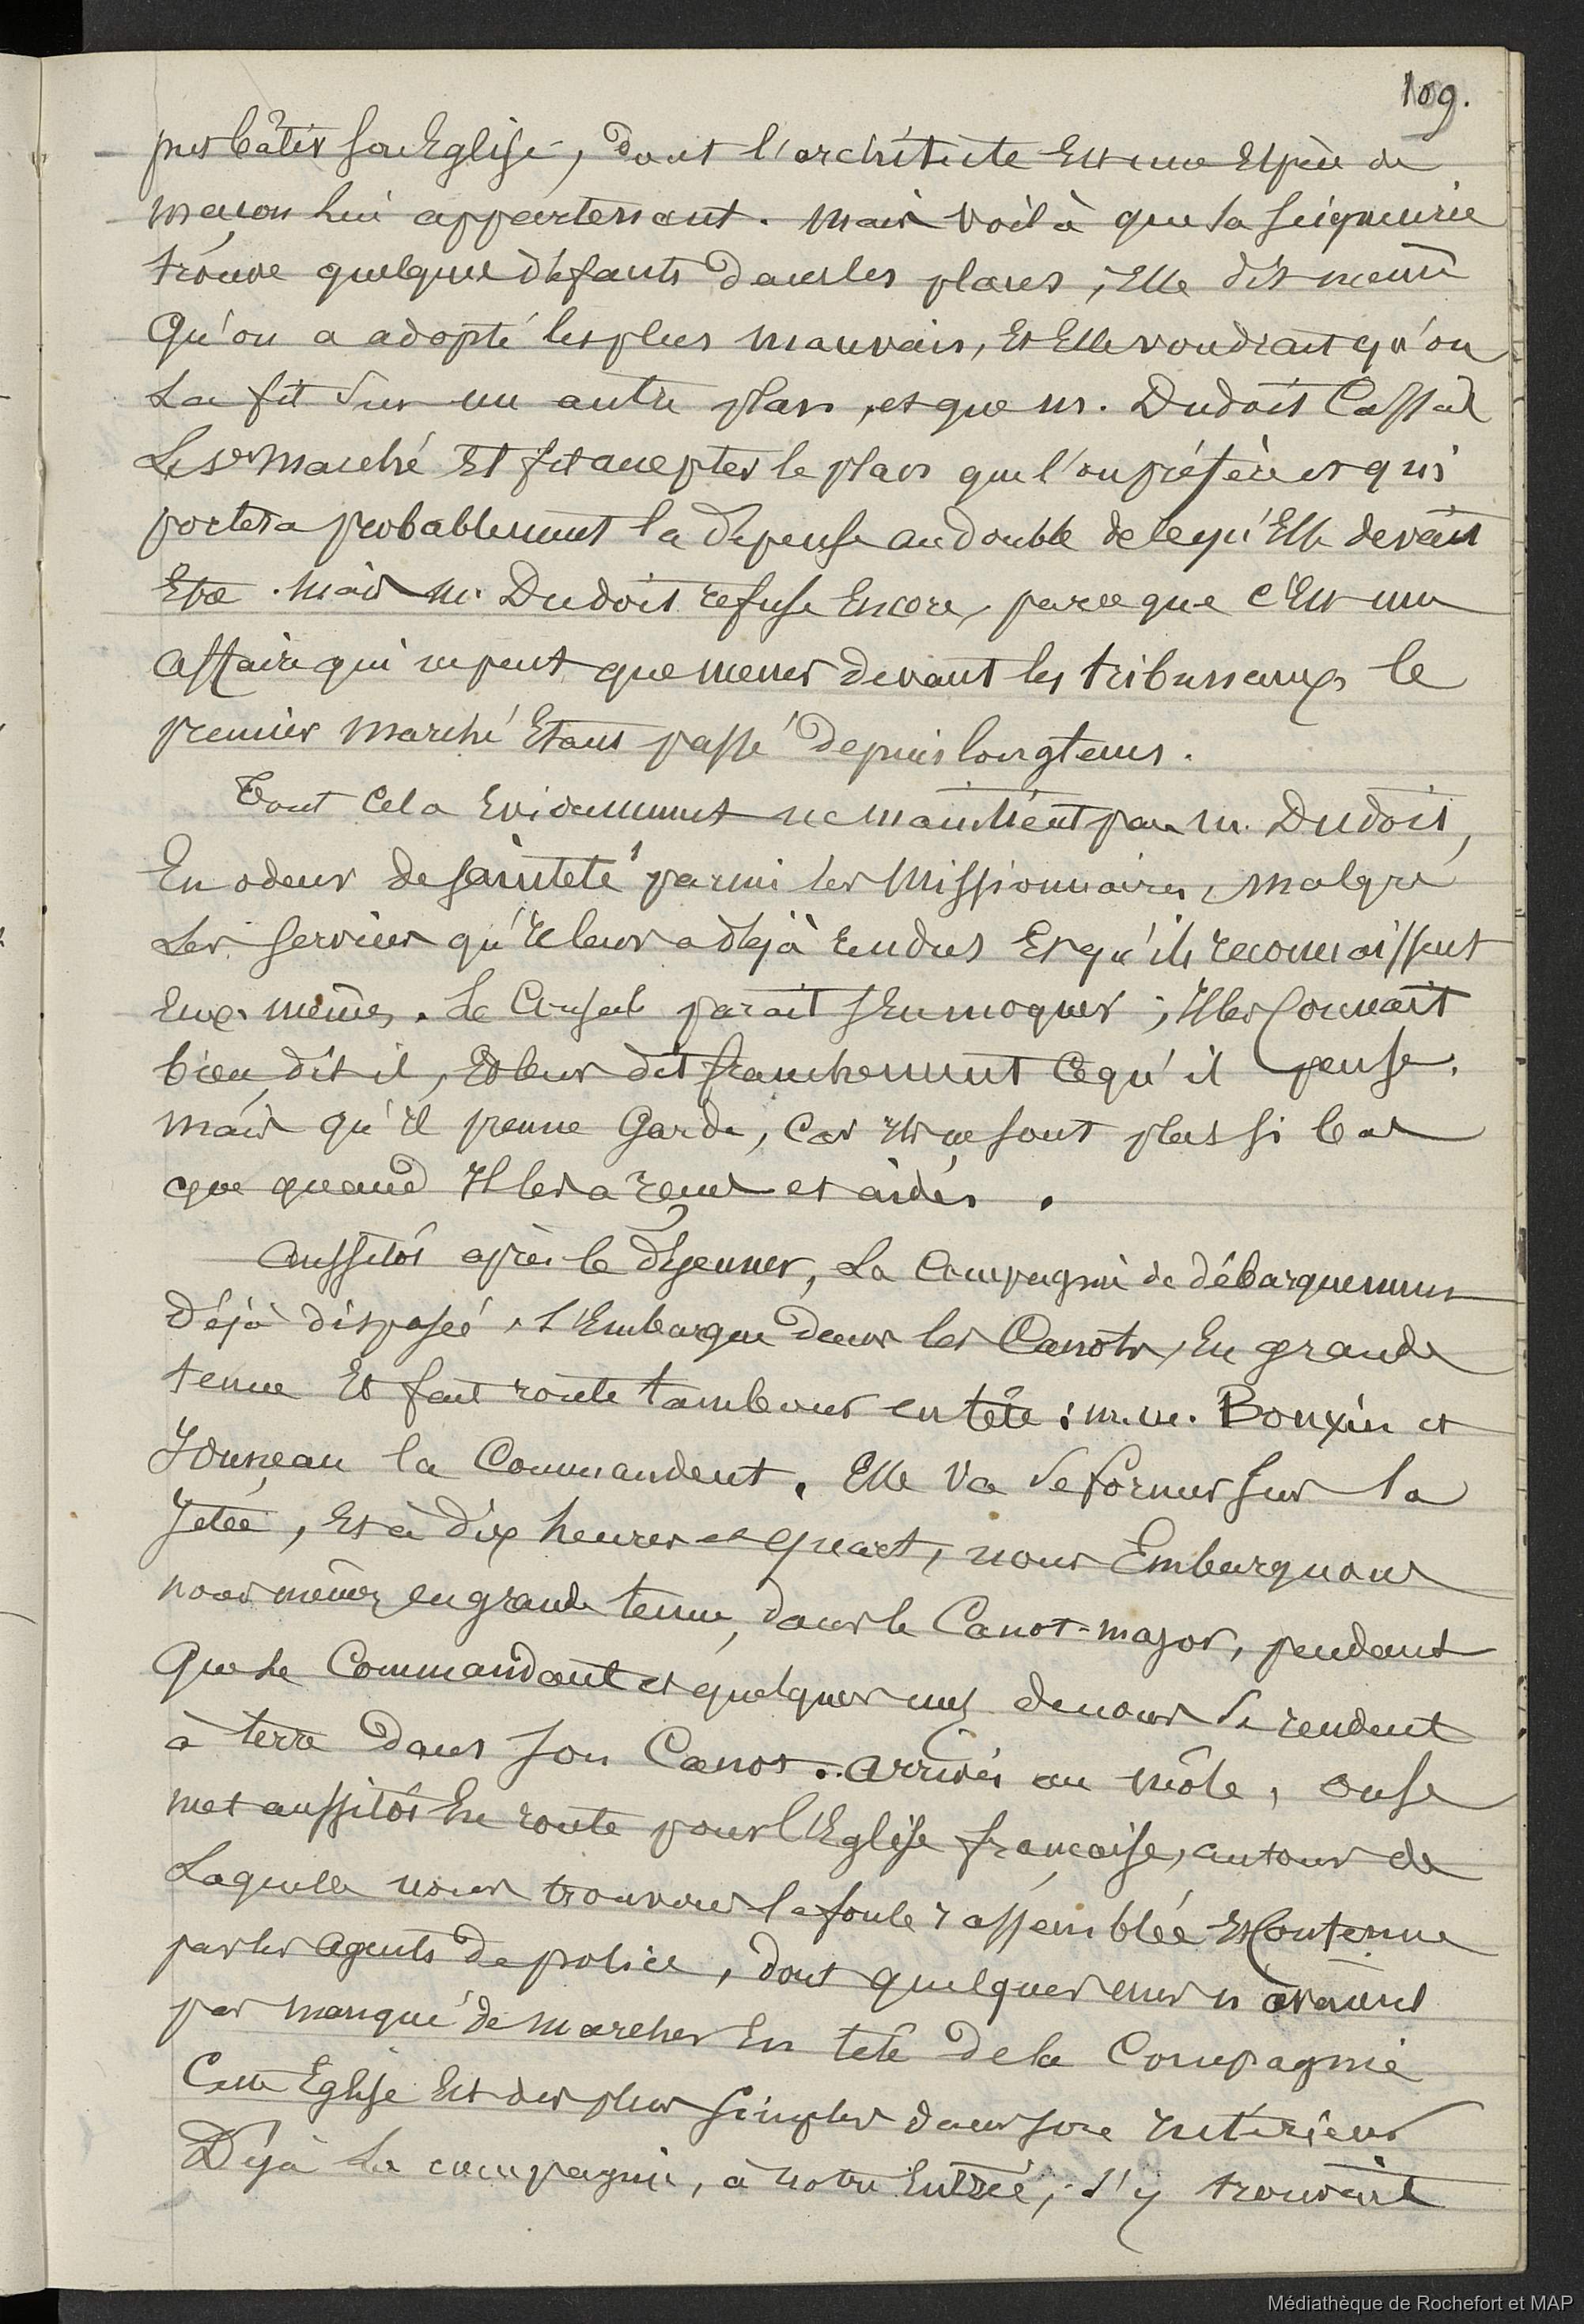 109.
pour bâtir son Eglise, dont l'architecte Est une Espèce de
maçon lui appartenant. mais voilà que sa seigneurie
trouve quelques défauts dans les plans, Elle dit même
Qu'on a adopté les plus mauvais, Et Elle voudrait qu'on
La fit sur un autre plan, et que m. Dudoit Cassat
Le 1er marché Et fit accepter le plan que l'on préfère et qui
portera probablement la dépense au double de ce qu'Elle devait
Etre. mais m. Dudoit refuse Encore, parceque c'Est une
affaire qui ne peut que mener devant les tribunaux, le
premier marché Etant passé depuis longtems.
Tout Cela Evidemment ne maintient pas m. Dudoit,
En odeur de sainteté parmi les Missionnaires, malgré
Les services qu'Il leur a déjà rendus Et qu'ils reconnaissent
Eux-mêmes. Le Consul parait s'En moquer; Il les Connait
bien, dit il, Et leur dit franchement Ce qu'il pense.
mais qu'Il prenne Garde, Car Ils ne sont plus si bas
que quand Il les a reçus et aidés.
Aussitôt après le déjeuner, La Compagnie de débarquement
Déjà disposée, s'Embarque dans les Canots, En grande
tenue Et fait route tambour en tête: m.m. Bonxin et
Jouneau la Commandent. Elle va se former sur la
Jetée, Et à dix heures et quart, nous Embarquons
nous mêmes, en grande tenue, dans le Canot-major, pendant
Que Le Commandant et quelques uns de nous se rendent
à terre Dans son Canot. Arrivés au môle, on se
met aussitôt En route pour l'Eglise française, autour de
Laquelle nous trouvons la foule rassemblée Et Contenue
par les Agents De police, dont quelques uns n'avaient
pas manqué de marcher En tête De la Compagnie
Cette Eglise Est des plus simples dans son Intérieur
Déjà La compagnie, à notre Entrée, s'y trouvait
Médiathèque de Rochefort et MAP